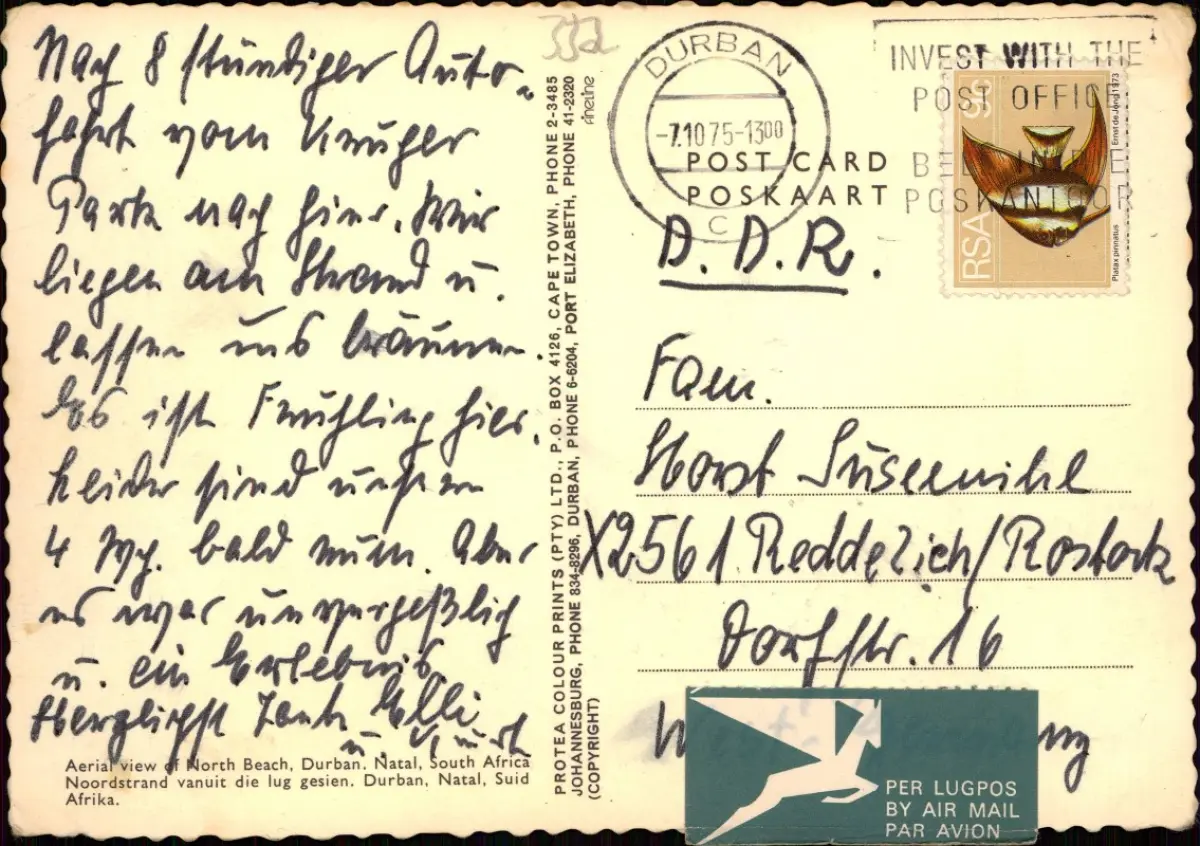 Nach 8 stündiger Auto-
fahrt vom Kruger
Park nach hier. Wir
liegen am Strand u.
lassen uns bräunen.
Es ist Frühling hier.
Leider sind unsere
4 Wo. bald rum. Aber
es war unvergeßlich
u. ein Erlebnis.
Herzlichst Tante Elli
u. Kurt
Aerial view of North Beach, Durban. Natal, South Africa
Noordstrand vanuit die lug gesien. Durban, Natal, Suid
Afrika.
PROTEA COLOUR PRINTS (PTY) LTD., P.O. BOX 4126, CAPE TOWN, PHONE 2-3485
JOHANNESBURG, PHONE 834-8296, DURBAN, PHONE 6-6204, PORT ELIZABETH, PHONE 41-2320
(COPYRIGHT)
fineline
DURBAN
-7.10 75-13 00
C
INVEST WITH THE
POST OFFICE
BELÊ IN DIE
POSKANTOOR
POST CARD
POSKAART
RSA 9c
Platax pinnatus
Ernst de Jong 1973
D. D. R.
Fam.
Horst Susemihl
X2561 Reddelich/Rostock
Dorfstr. 16
PER LUGPOS
BY AIR MAIL
PAR AVION